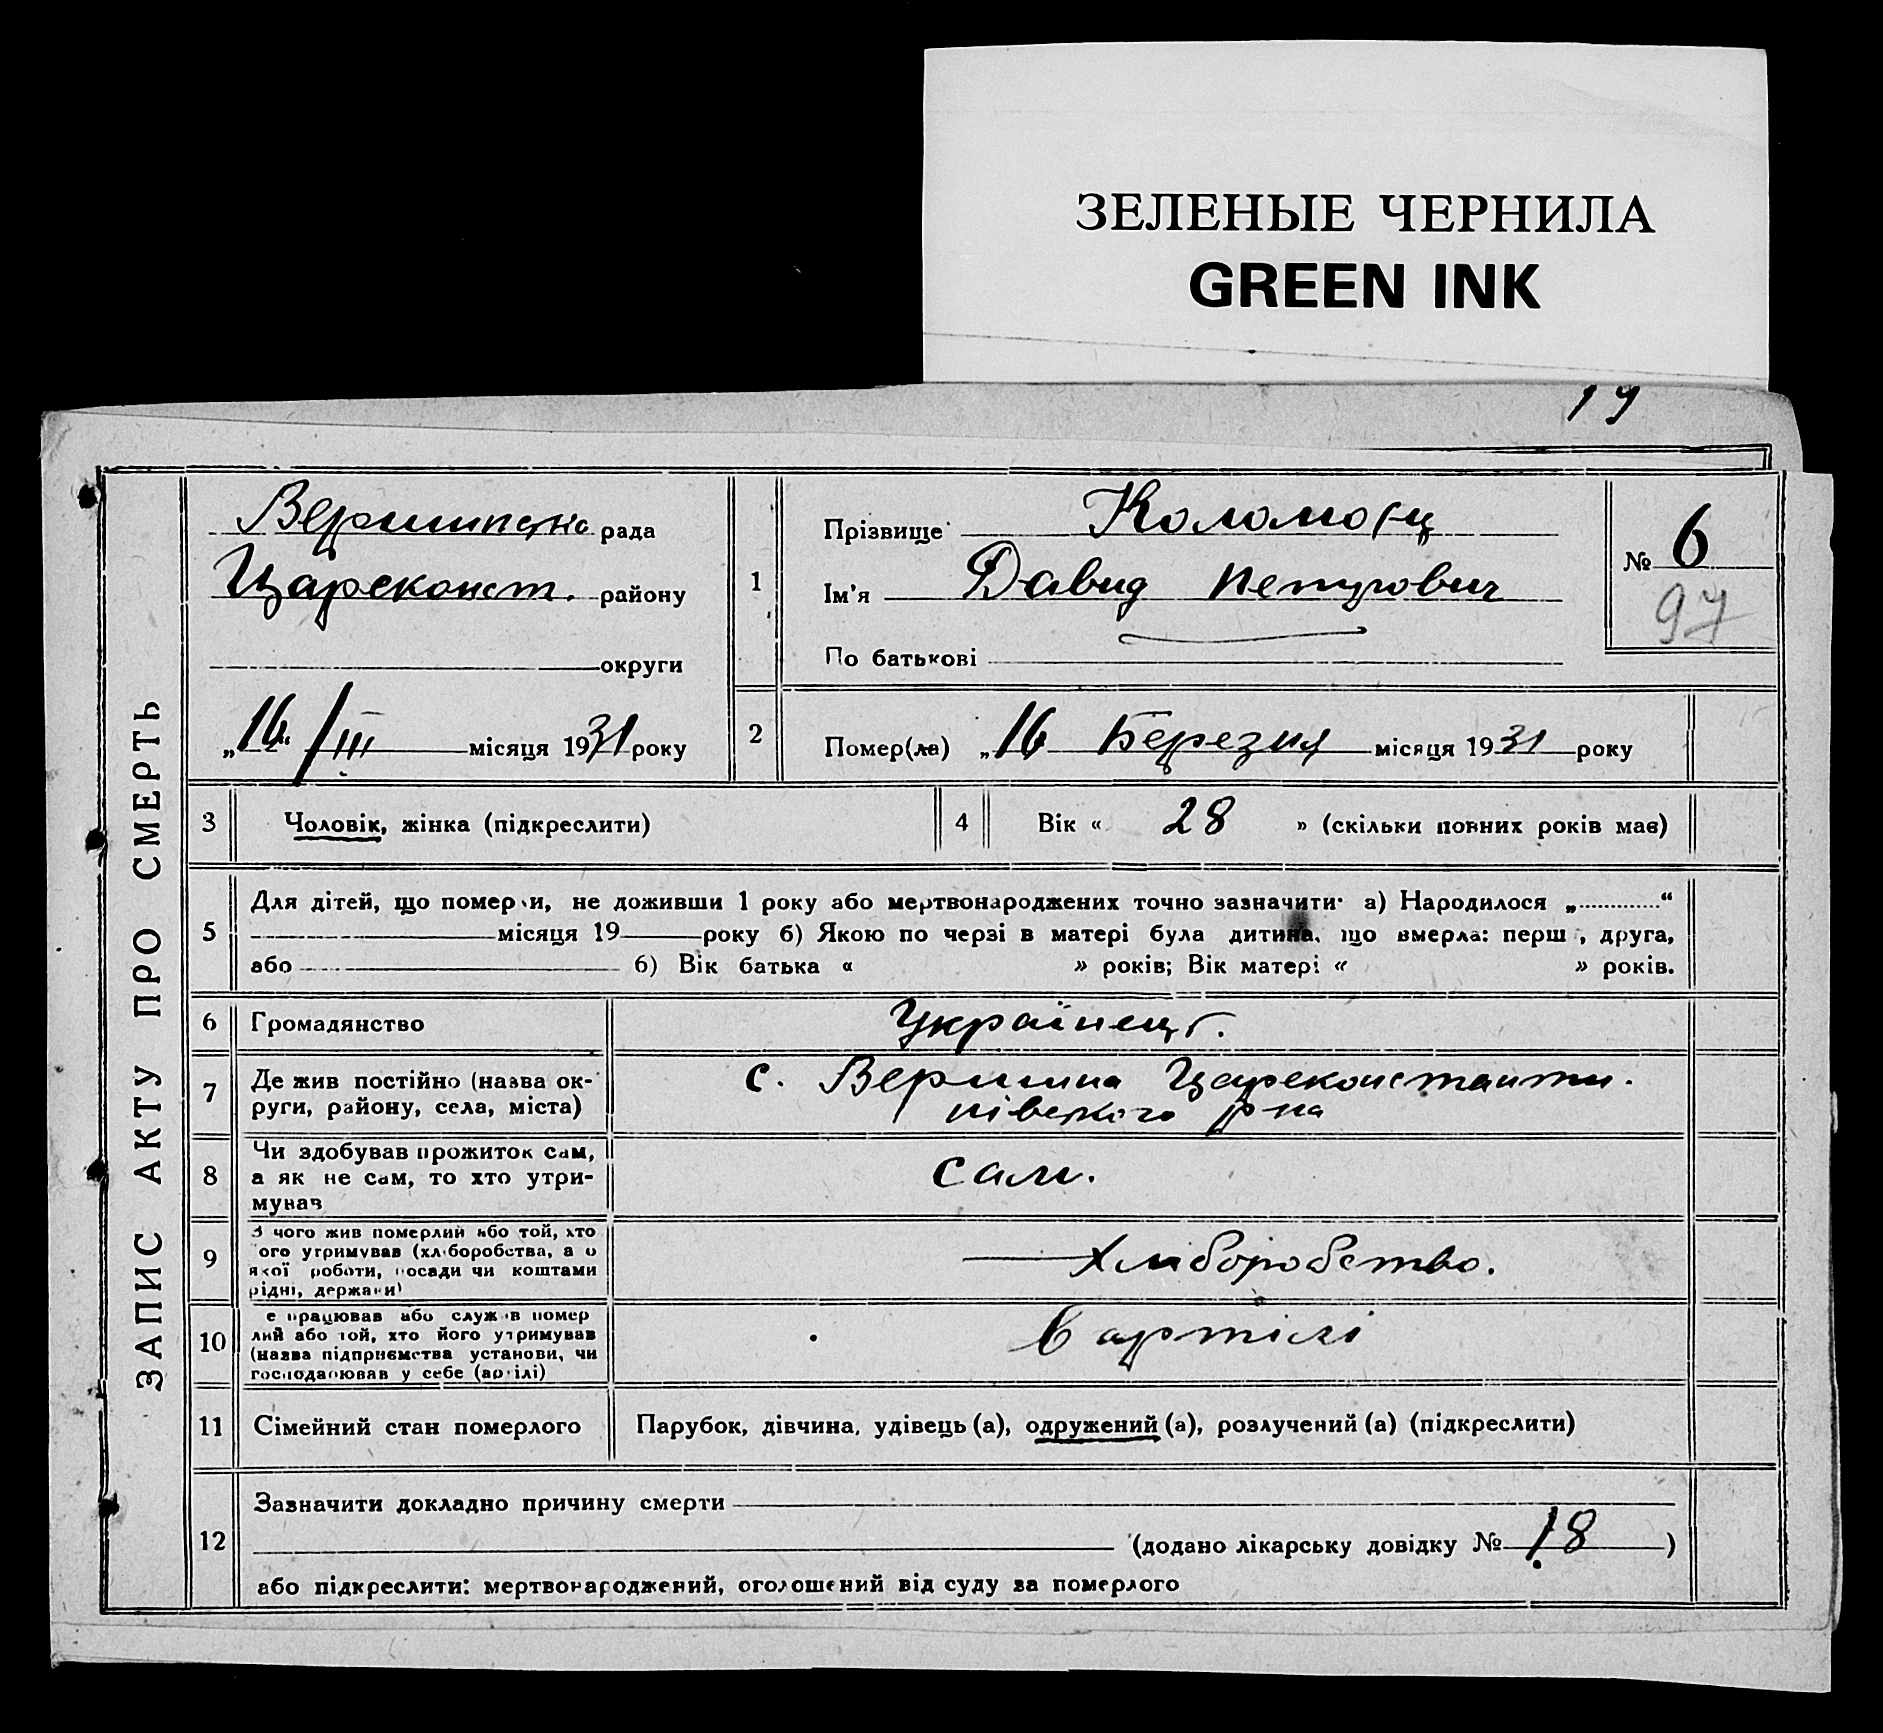 ЗЕЛЕНЫЕ ЧЕРНИЛА
GREEN INK
19
ЗАПИС АКТУ ПРО СМЕРТЬ
рада
Царсконст. району
округи
„16“ /III місяця 1931 року
1
Прізвище
Ім'я Давид Петрович
По батькові
№ 6
97
2
Помер(ла) „16 Березня місяця 1931 року
3
Чоловік, жінка (підкреслити)
4
Вік « 28 » (скільки повних років має)
5
Для дітей, що померли, не доживши 1 року або мертвонароджених точно зазначити: а) Народилося „ “
місяця 19 року б) Якою по черзі в матері була дитина, що вмерла: перша, друга,
або б) Вік батька « » років; Вік матері « » років.
6
Громадянство
Українець.
7
Де жив постійно (назва ок-
руги, району, села, міста)
с. Вершина Царсконстанти-
нівського р-на
8
Чи здобував прожиток сам,
а як не сам, то хто утри-
мував
сам.
9
З чого жив померлий або той, хто
його утримував (хліборобства, а о
якої роботи, посади чи коштами
рідні, держави)
Хліборобство.
10
е працював або служив помер
лий або той, хто його утримував
(назва підприємства установи, чи
господарював у себе (артілі)
в артілі
11
Сімейний стан померлого
Парубок, дівчина, удівець (а), одружений (а), розлучений (а) (підкреслити)
12
Зазначити докладно причину смерти
(додано лікарську довідку № 18 )
або підкреслити: мертвонароджений, оголошений від суду за померлого